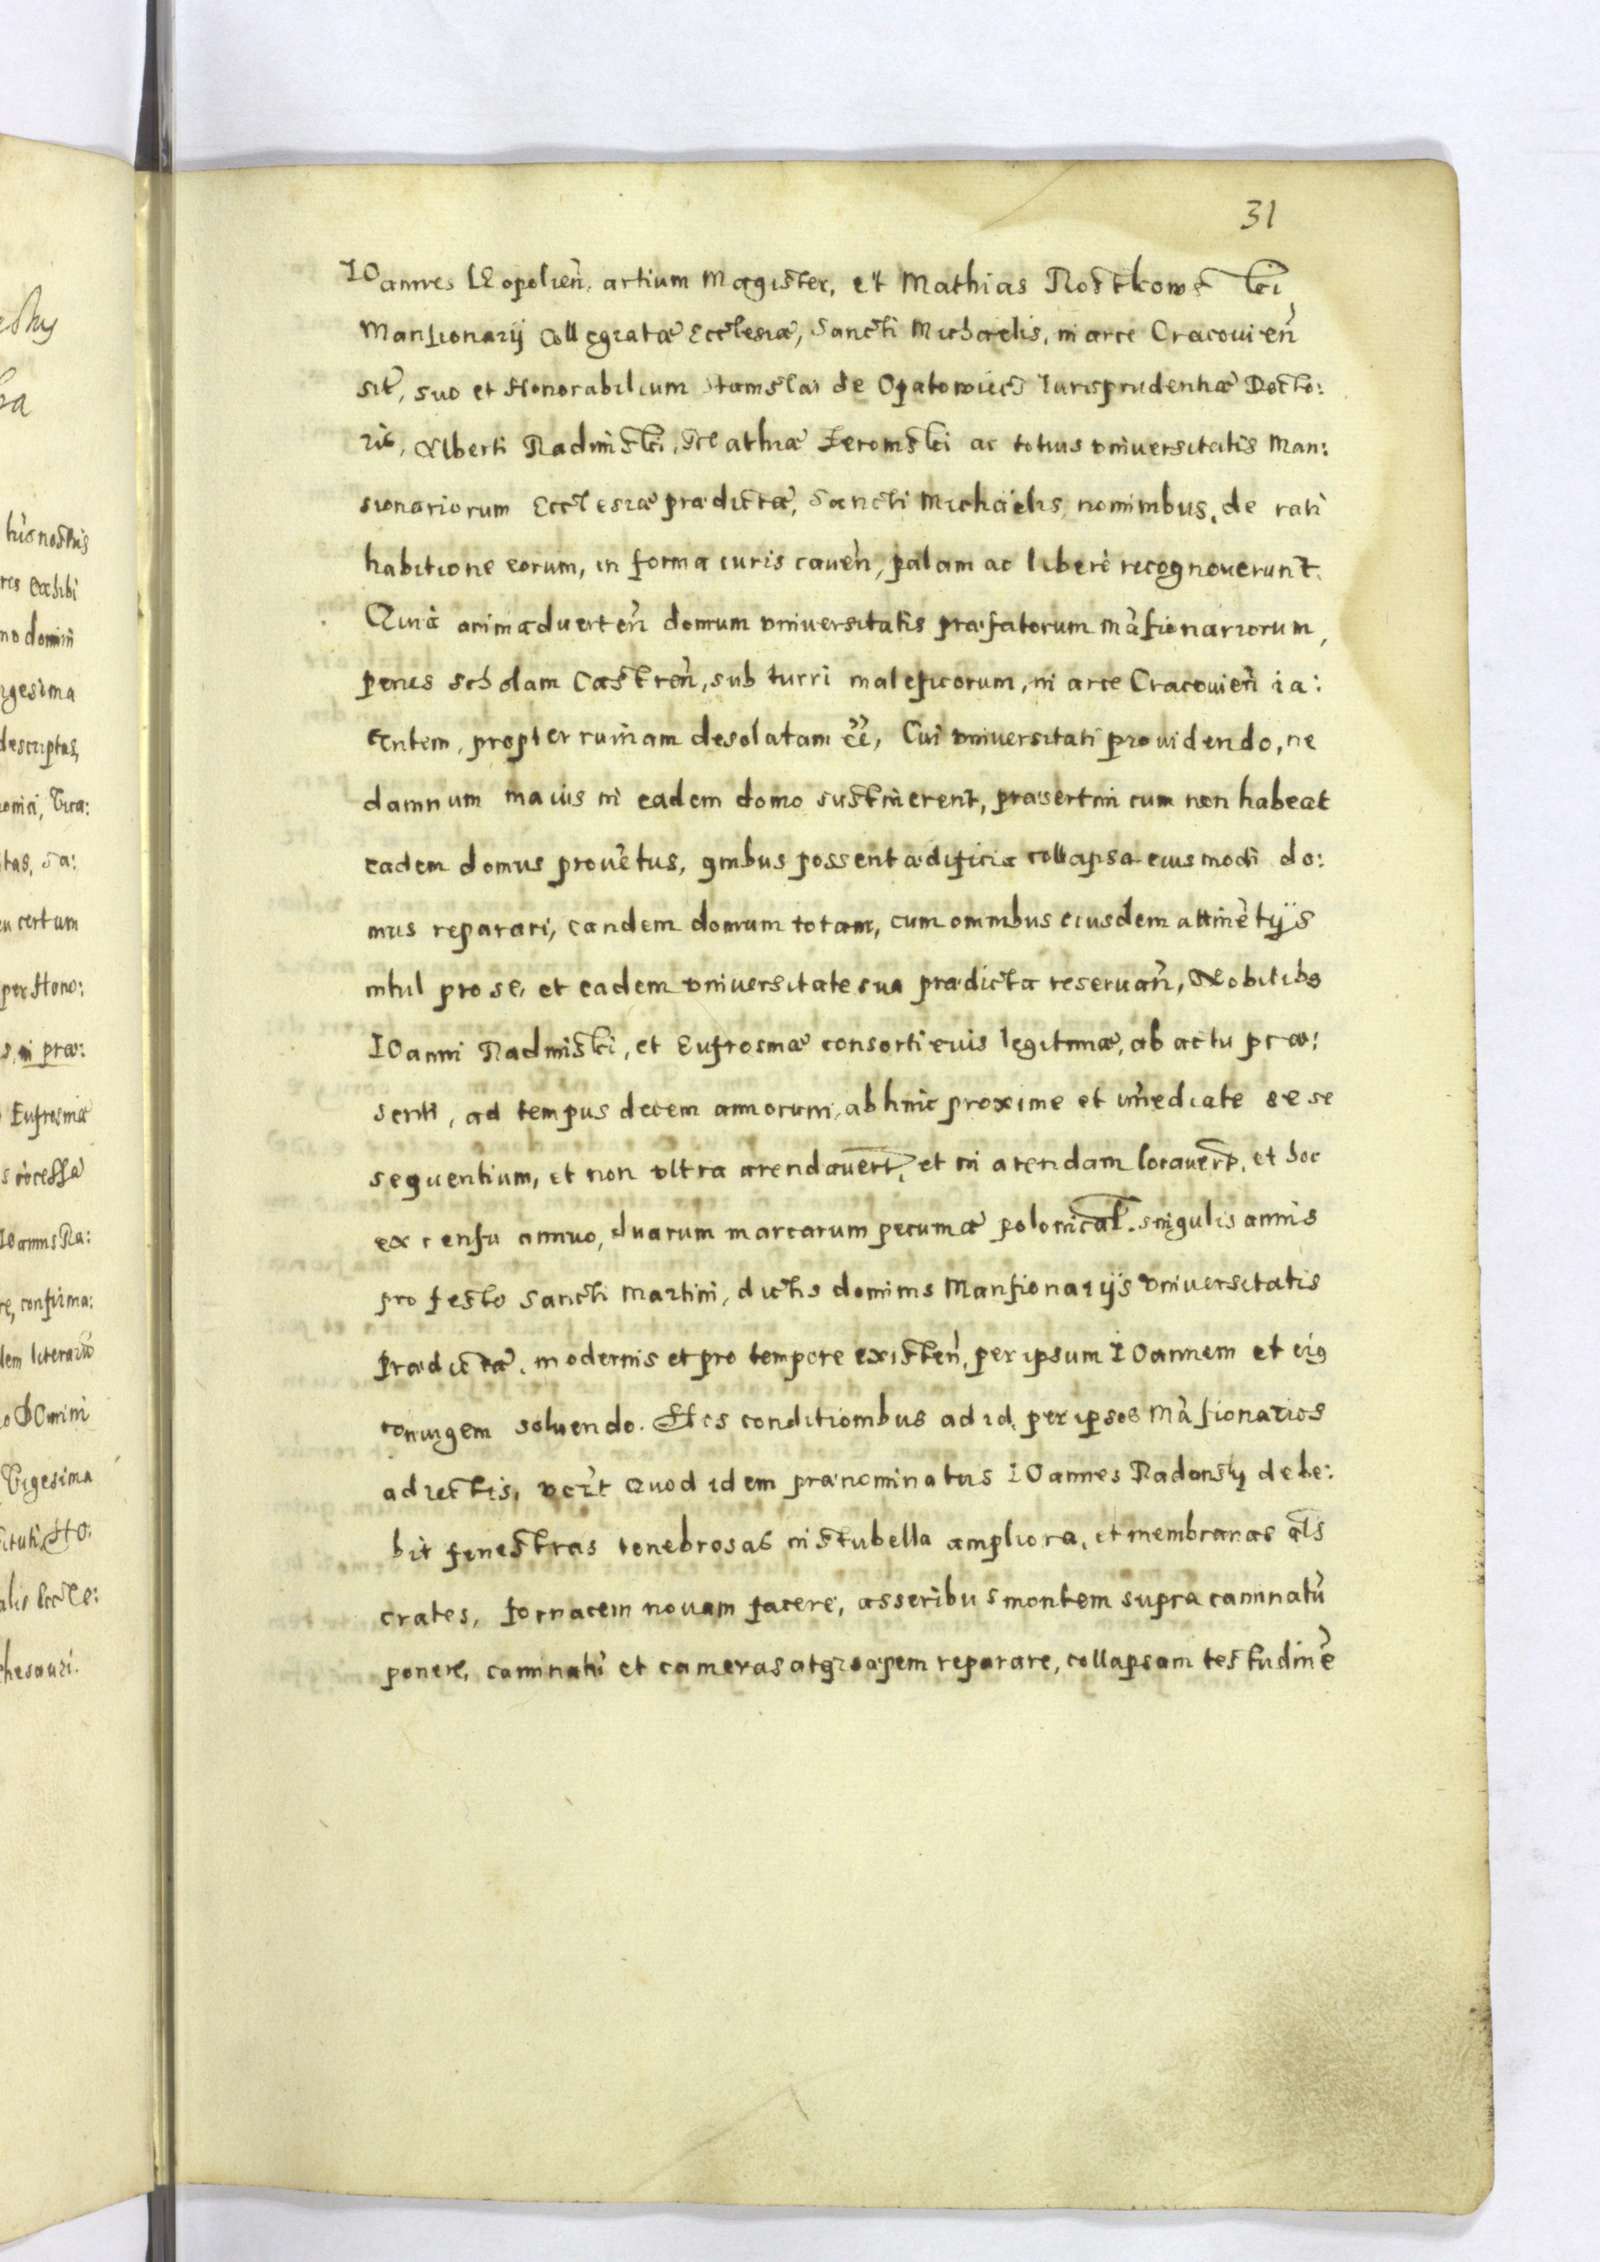 31
IOannes LEopolien̄. artium Magister, et Mathias Rostkowski
Mansionarij Collegiatæ Ecclesiæ, Sancti Michaelis, in arce Cracouien̄
sit̄, suo et Honorabilium Stanislai de Opatowiecz Iurisprudentiæ Docto:
ris, Alberti Radinski, Mathiæ Zeromski ac totius vniuersitatis Man:
sionariorum Ecclesiæ prædictæ, Sancti Michaelis, nominibus, de rati
habitione eorum, in forma iuris cauen̄, palam ac liberè recognouerunt.
Quià animaduerten̄ domum vniuersitatis præfatorum Mā̄sionariorum,
penes scholam Castren̄, sub turri maleficorum, in arce Cracouien̄ ia:
centem, propter ruinam desolatam eē̄, Cui vniuersitati prouidendo, ne
damnum maius in eadem domo sustinerent, præsertim cum non habeat
eadem domus prouētus, quibus possent ædificia collapsa eiusmodi do:
mus reparari, eandem domum totam, cum omnibus eiusdem attinētijs
nihil pro se, et eadem vniuersitate sua prædicta reseruan̄, Nobilibus
IOanni Radinski, et Eufrosinæ consorti eius legitimæ, ab actu præ:
senti, ad tempus decem annorum, abhinc proxime et im̄ediate se se
sequentium, et non vltra arendauer̄t, et in arendam locauer̄t, et hoc
ex censu annuo, duarum marcarum pecuniæ polonical̄. singulis annis
pro festo Sancti Martini, dictis dominis Mansionarijs vniuersitatis
prædictæ, modernis et pro tempore existen̄, per ipsum IOannem et eius
coniugem soluendo. His conditionibus ad id, per ipsos Mā̄sionarios
adiectis, vcz̄t Quod idem prænominatus IOannes Radonsky debe:
bit fenestras tenebrosas in stubella ampliora, et membranas al̄s
crates, fornacem nouam facere, asseribus montem supra caminatū
ponere, caminatū et cameras atque apem reparare, collapsam testudinē